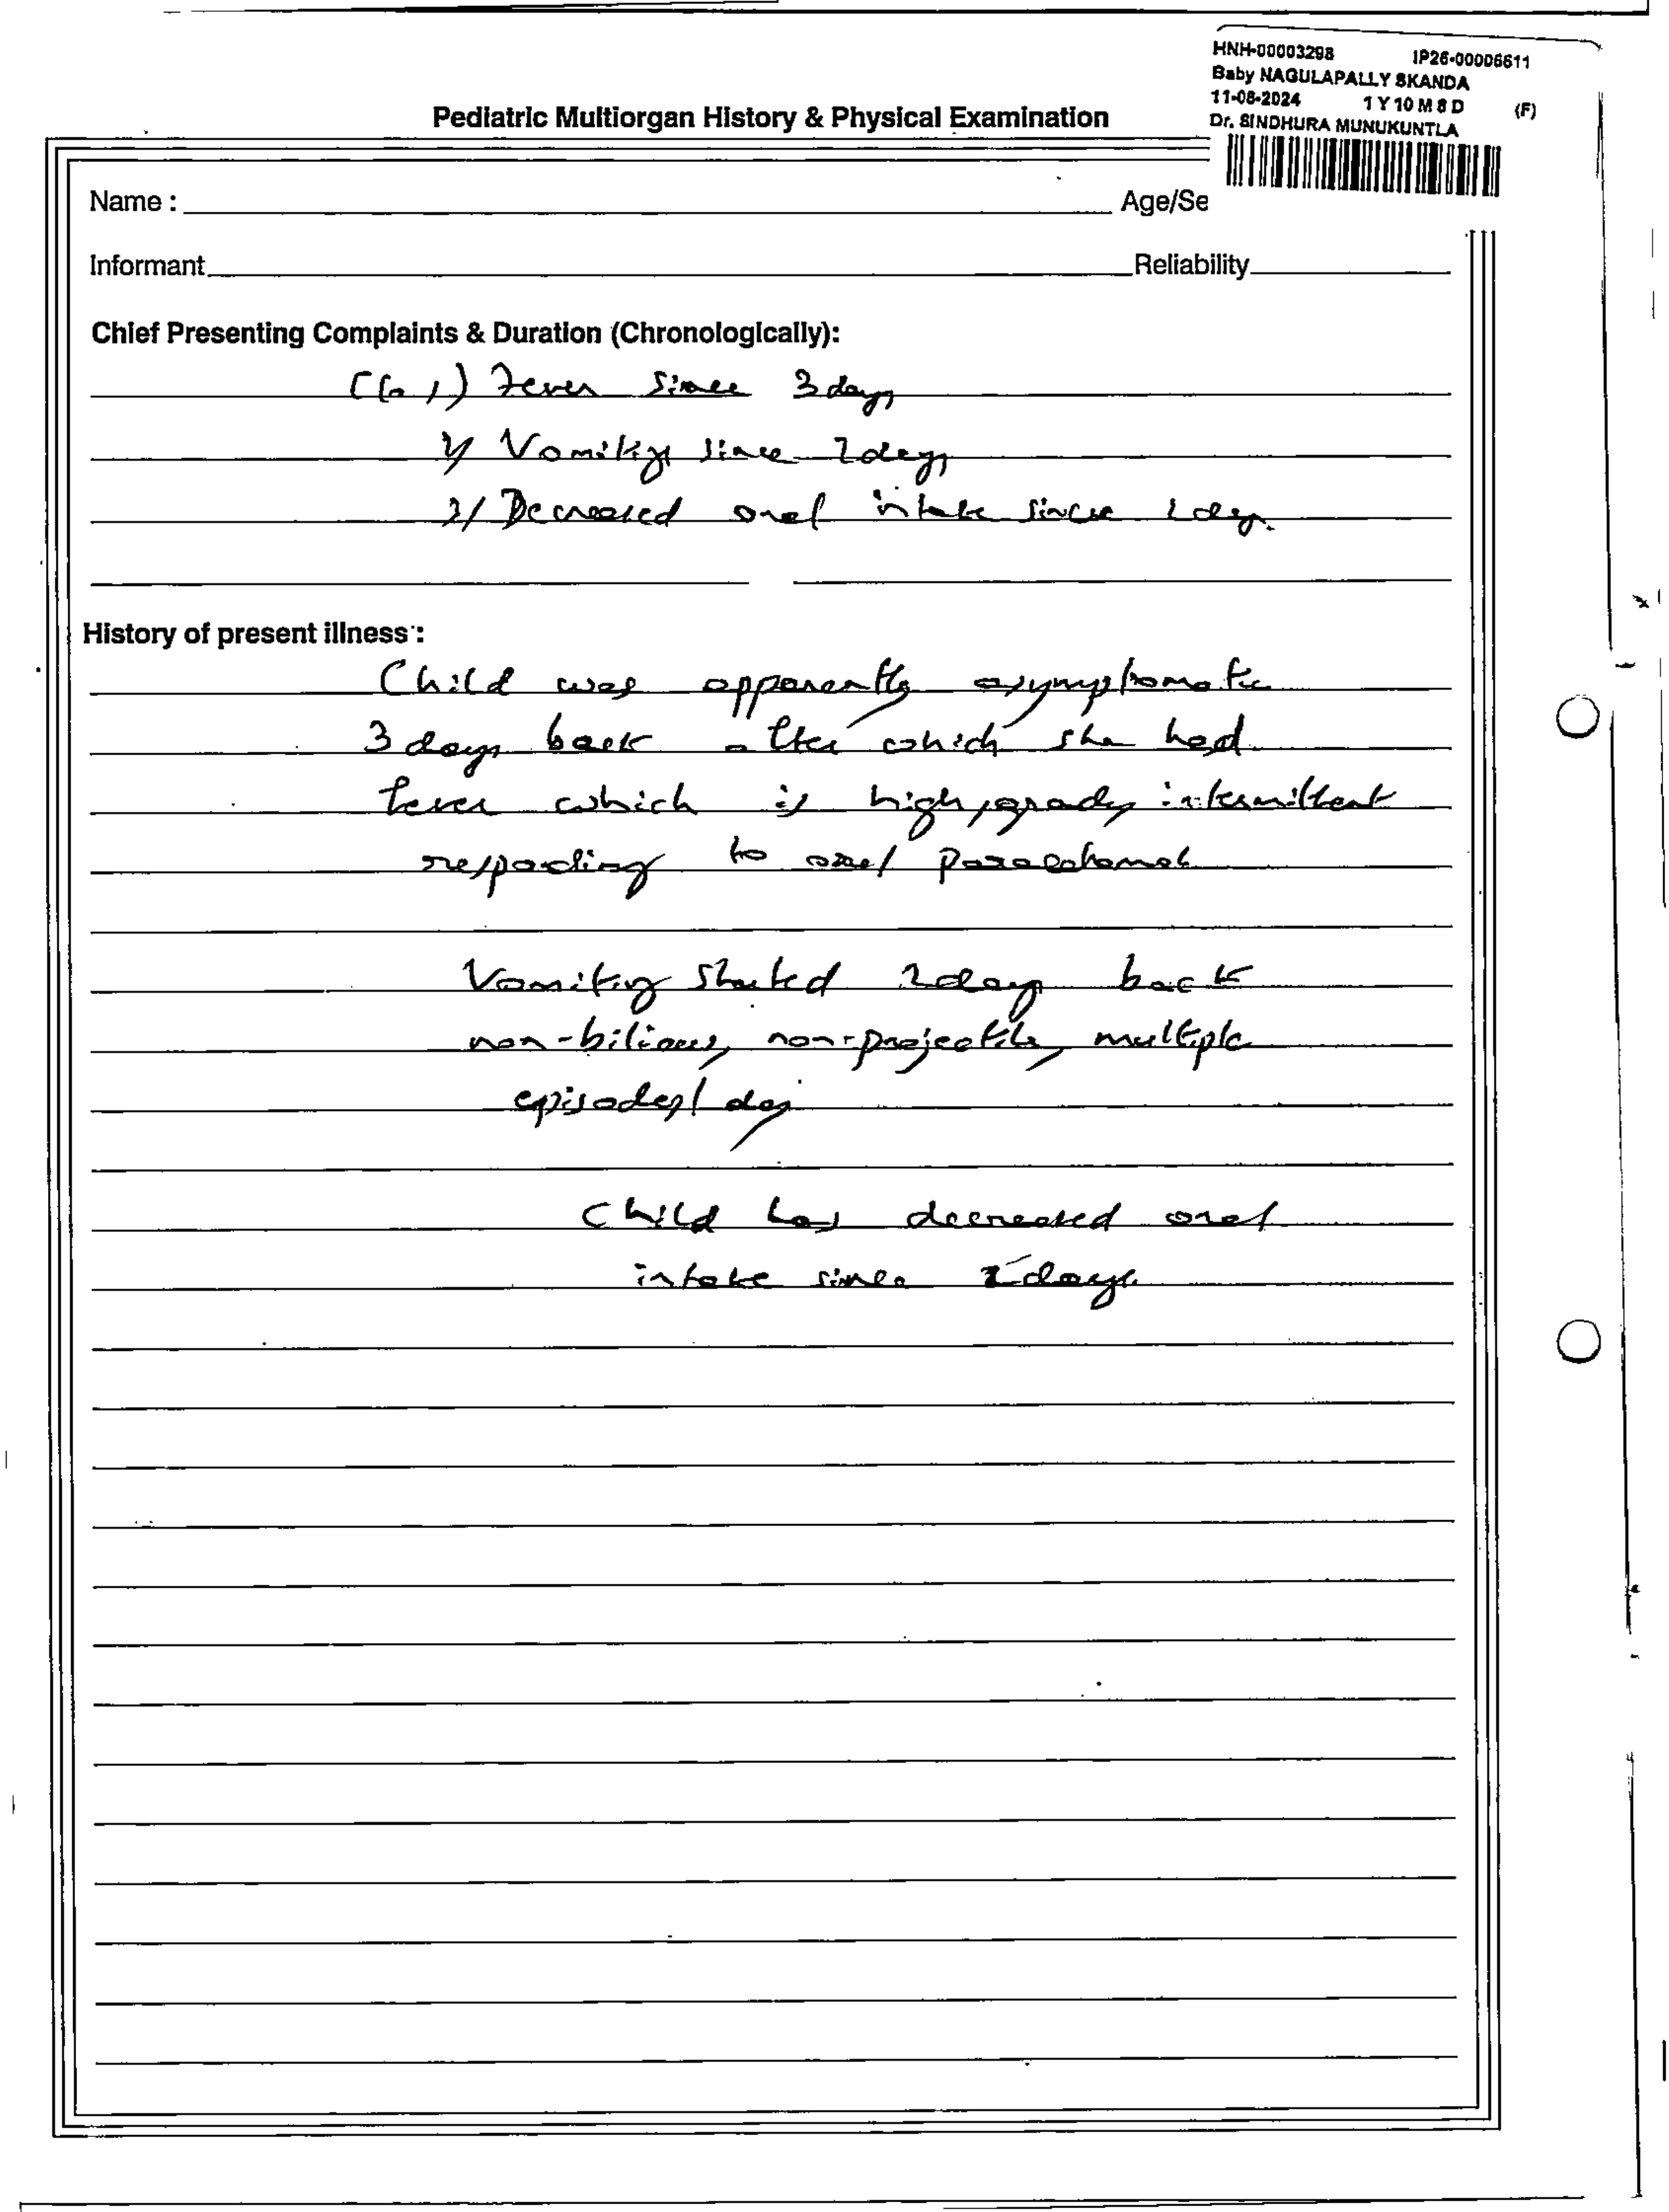 HNH-00003298 IP26-00006611
Baby NAGULAPALLY SKANDA
11-08-2024 1 Y 10 M 8 D (F)
Dr. SINDHURA MUNUKUNTLA
Pediatric Multiorgan History & Physical Examination
Name : Age/Se
Informant Reliability
Chief Presenting Complaints & Duration (Chronologically):
C/o 1) Fever since 3 days
2/ Vomiting since 2 days
3/ Decreased oral intake since 1 day.
History of present illness :
Child was apparently asymptomatic
3 days back after which she had
fever which is high, grade, intermittent
responding to oral Paracetamol
Vomiting started 2 day back
non-bilious, non-projectile, multiple
episodes/ day
Child has decreased oral
intake since days